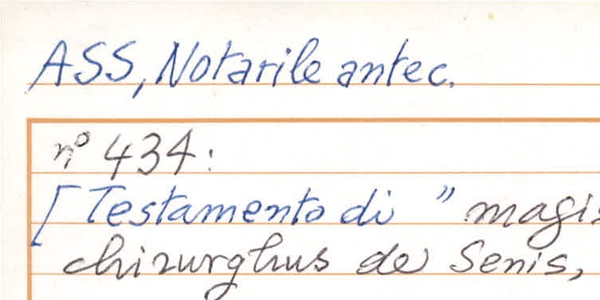 ASS, Notarile antec.
n° 434:
[Testamento di " magis
chirurghus de Senis,